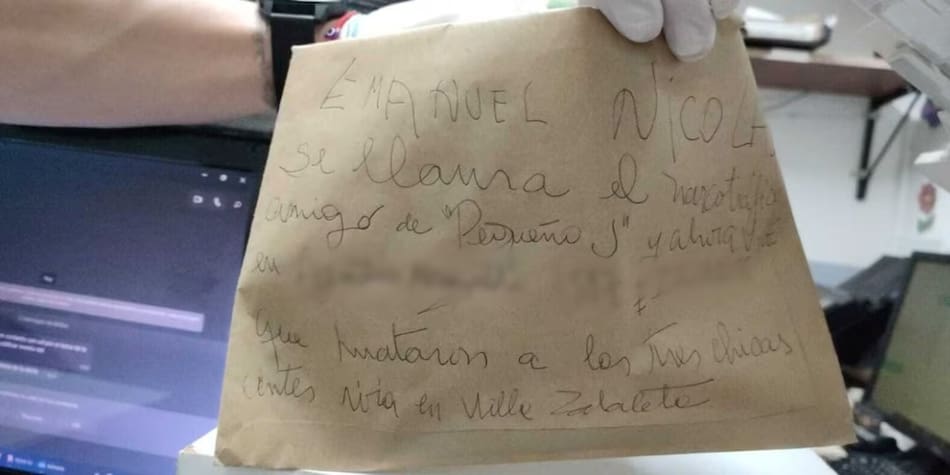 EMANUEL NICOLA
se llama el narcotrafic
amigo de "Pequeño J" y ahora vive
en
que mataron a las tres chicas
antes vivia en Villa Zabaleta